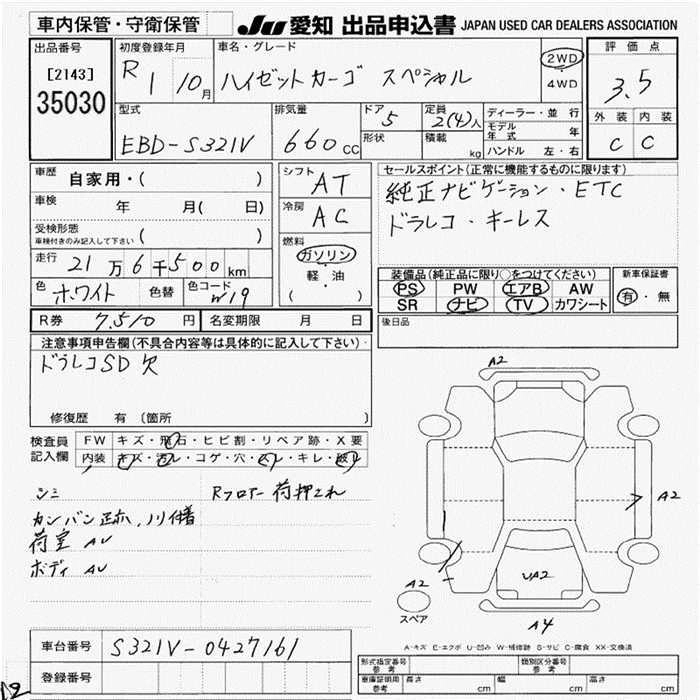 車内保管・守衛保管
JU 愛知 出品申込書 JAPAN USED CAR DEALERS ASSOCIATION
出品番号
[2143]
35030
初度登録年月
R 1 / 10月
車名・グレード
ハイゼットカーゴ スペシャル
2WD
・
4WD
評価点
3.5
外装 内装
C C
型式
EBD-S321V
排気量
660cc
ドア
5
定員
2(4)人
形状
積載
kg
ディーラー・並行
モデル年式 年
ハンドル 左・右
車歴
自家用・( )
車検
年 月( 日)
受検形態
車検付きのみ記入して下さい ( )
走行
21万6千500km
色
ホワイト
色替
色コード
W19
シフト
AT
冷房
AC
燃料
ガソリン
・
軽・油
( )
セールスポイント(正常に機能するものに限ります)
純正ナビゲーション・ETC
ドラレコ・キーレス
装備品(純正品に限り○をつけてください)
PS PW エアB AW
SR ナビ TV カワシート
新車保証書
有・無
R券 7,510円 名変期限 月 日
後日品
注意事項申告欄(不具合内容等は具体的に記入して下さい)
ドラレコSD欠
修復歴 有(箇所 )
検査員
記入欄
FW キズ・飛石・ヒビ割・リペア跡・X要
内装 キズ・汚レ・コゲ・穴・スレ・キレ・破レ
シミ
Rフロアー荷押され
カンバン跡、ノリ付着
荷室 AU
ボディ AU
A2
A2
A2
UA2
スペア
A4
A-キズ E-エクボ U-凹み W-補修跡 S-サビ C-腐食 XX-交換済
車台番号 S321V-0427161
登録番号
形式指定番号
参考
類別区分番号
参考
車庫証明用
参考
長さ cm 幅 cm 高さ cm